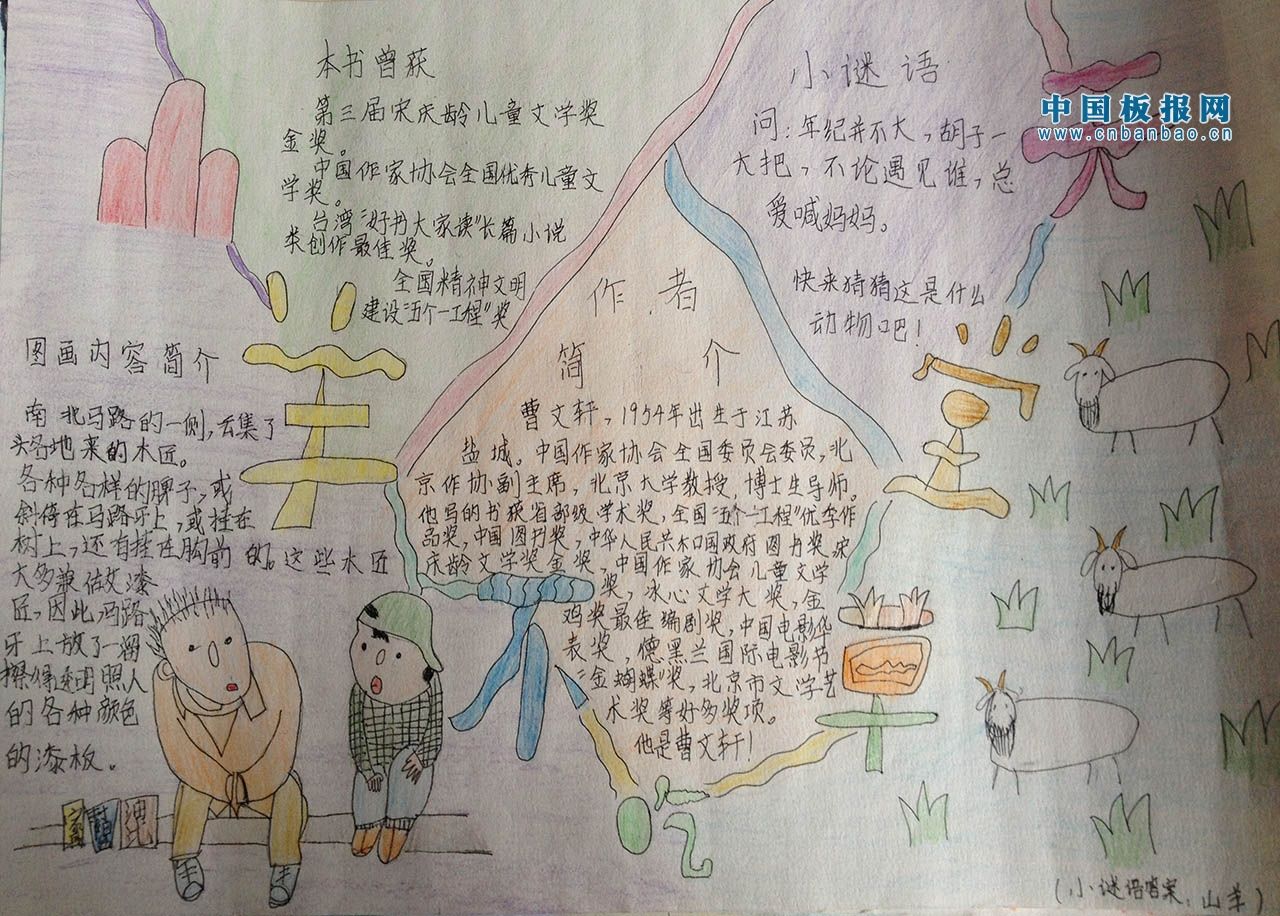 山羊不吃天堂草
中国板报网
www.cnbanbao.cn
本书曾获
第三届宋庆龄儿童文学奖
金奖。
中国作家协会全国优秀儿童文
学奖。
台湾“好书大家读”长篇小说
类创作最佳奖。
全国精神文明
建设“五个一工程”奖
小谜语
问:年纪并不大,胡子一
大把,不论遇见谁,总
爱喊妈妈。
快来猜猜这是什么
动物吧!
作者
简介
曹文轩,1954年出生于江苏
盐城。中国作家协会全国委员会委员,北
京作协副主席,北京大学教授,博士生导师。
他写的书获省部级学术奖,全国“五个一工程”优秀作
品奖,中国图书奖,中华人民共和国政府图书奖宋
庆龄文学奖金奖,中国作家协会儿童文学
奖,冰心文学大奖,金
鸡奖最佳编剧奖,中国电影华
表奖,德黑兰国际电影节
“金蝴蝶”奖,北京市文学艺
术奖等好多奖项。
他是曹文轩!
图画内容简介
南北马路的一侧,云集了
各地来的木匠。
各种各样的牌子,或
斜倚在马路牙上,或挂在
树上,还有挂在胸前的。这些木匠
大多兼做漆
匠,因此,马路
牙上放了一溜
擦得透明照人
的各种颜色
的漆板。
(小谜语答案:山羊)